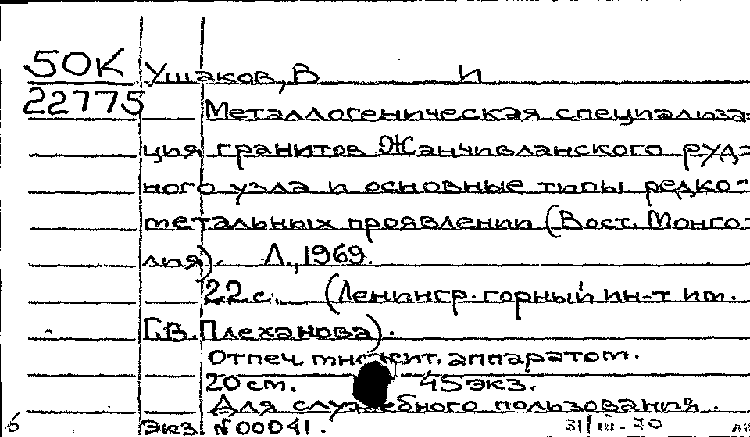 50К Ушаков, В И
22775 Металлогеническая специализа-
ция гранитов Жанчивланского руд-
ного узла и основные типы редко-
метальных проявлении (Вост. Монго-
лия). Л., 1969.
22 с. (Ленингр. горный ин-т им.
Г.В. Плеханова).
Отпеч. множит. аппаратом.
20 см. 45 экз.
Для служебного пользования.
Экз. №00041. 31/III-70